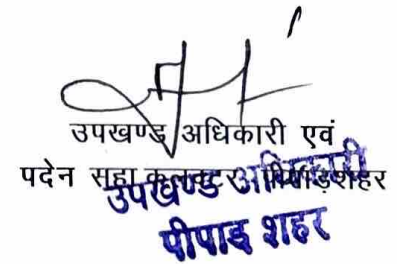 उपखण्ड अधिकारी एवं
पदेन सहा कलक्टर पीपाड़शहर
उपखण्ड अधिकारी
पीपाड़ शहर